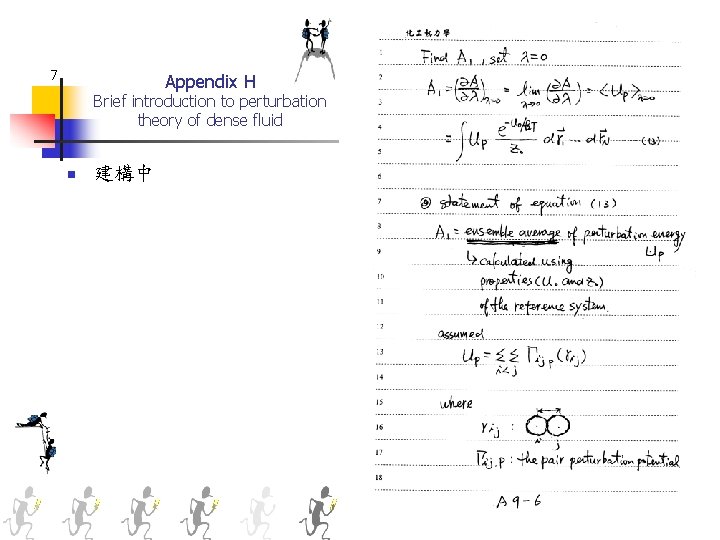 7
Appendix H
Brief introduction to perturbation
theory of dense fluid
建構中
化工熱力學
1 Find A₁, set λ=0
2 A₁ = (∂A/∂λ)λ→0 = lim λ→0 (∂A/∂λ) = <Up>λ=0
3
4 = ∫ Up e^(-U₀/kBT)/Z₀ dr⃗₁ … dr⃗N (13)
5
6
7 ◎ statement of equation (13)
8 A₁ = ensemble average of perturbation energy
Up
9 ↳ calculated using
10 properties (U₀ and Z₀)
11 of the reference system.
12 assumed
13 Up = ΣΣ i<j Γij,p (rij)
14
15 where
16 rij : i j
17 Γij,p : the pair perturbation potential
18
A9-6